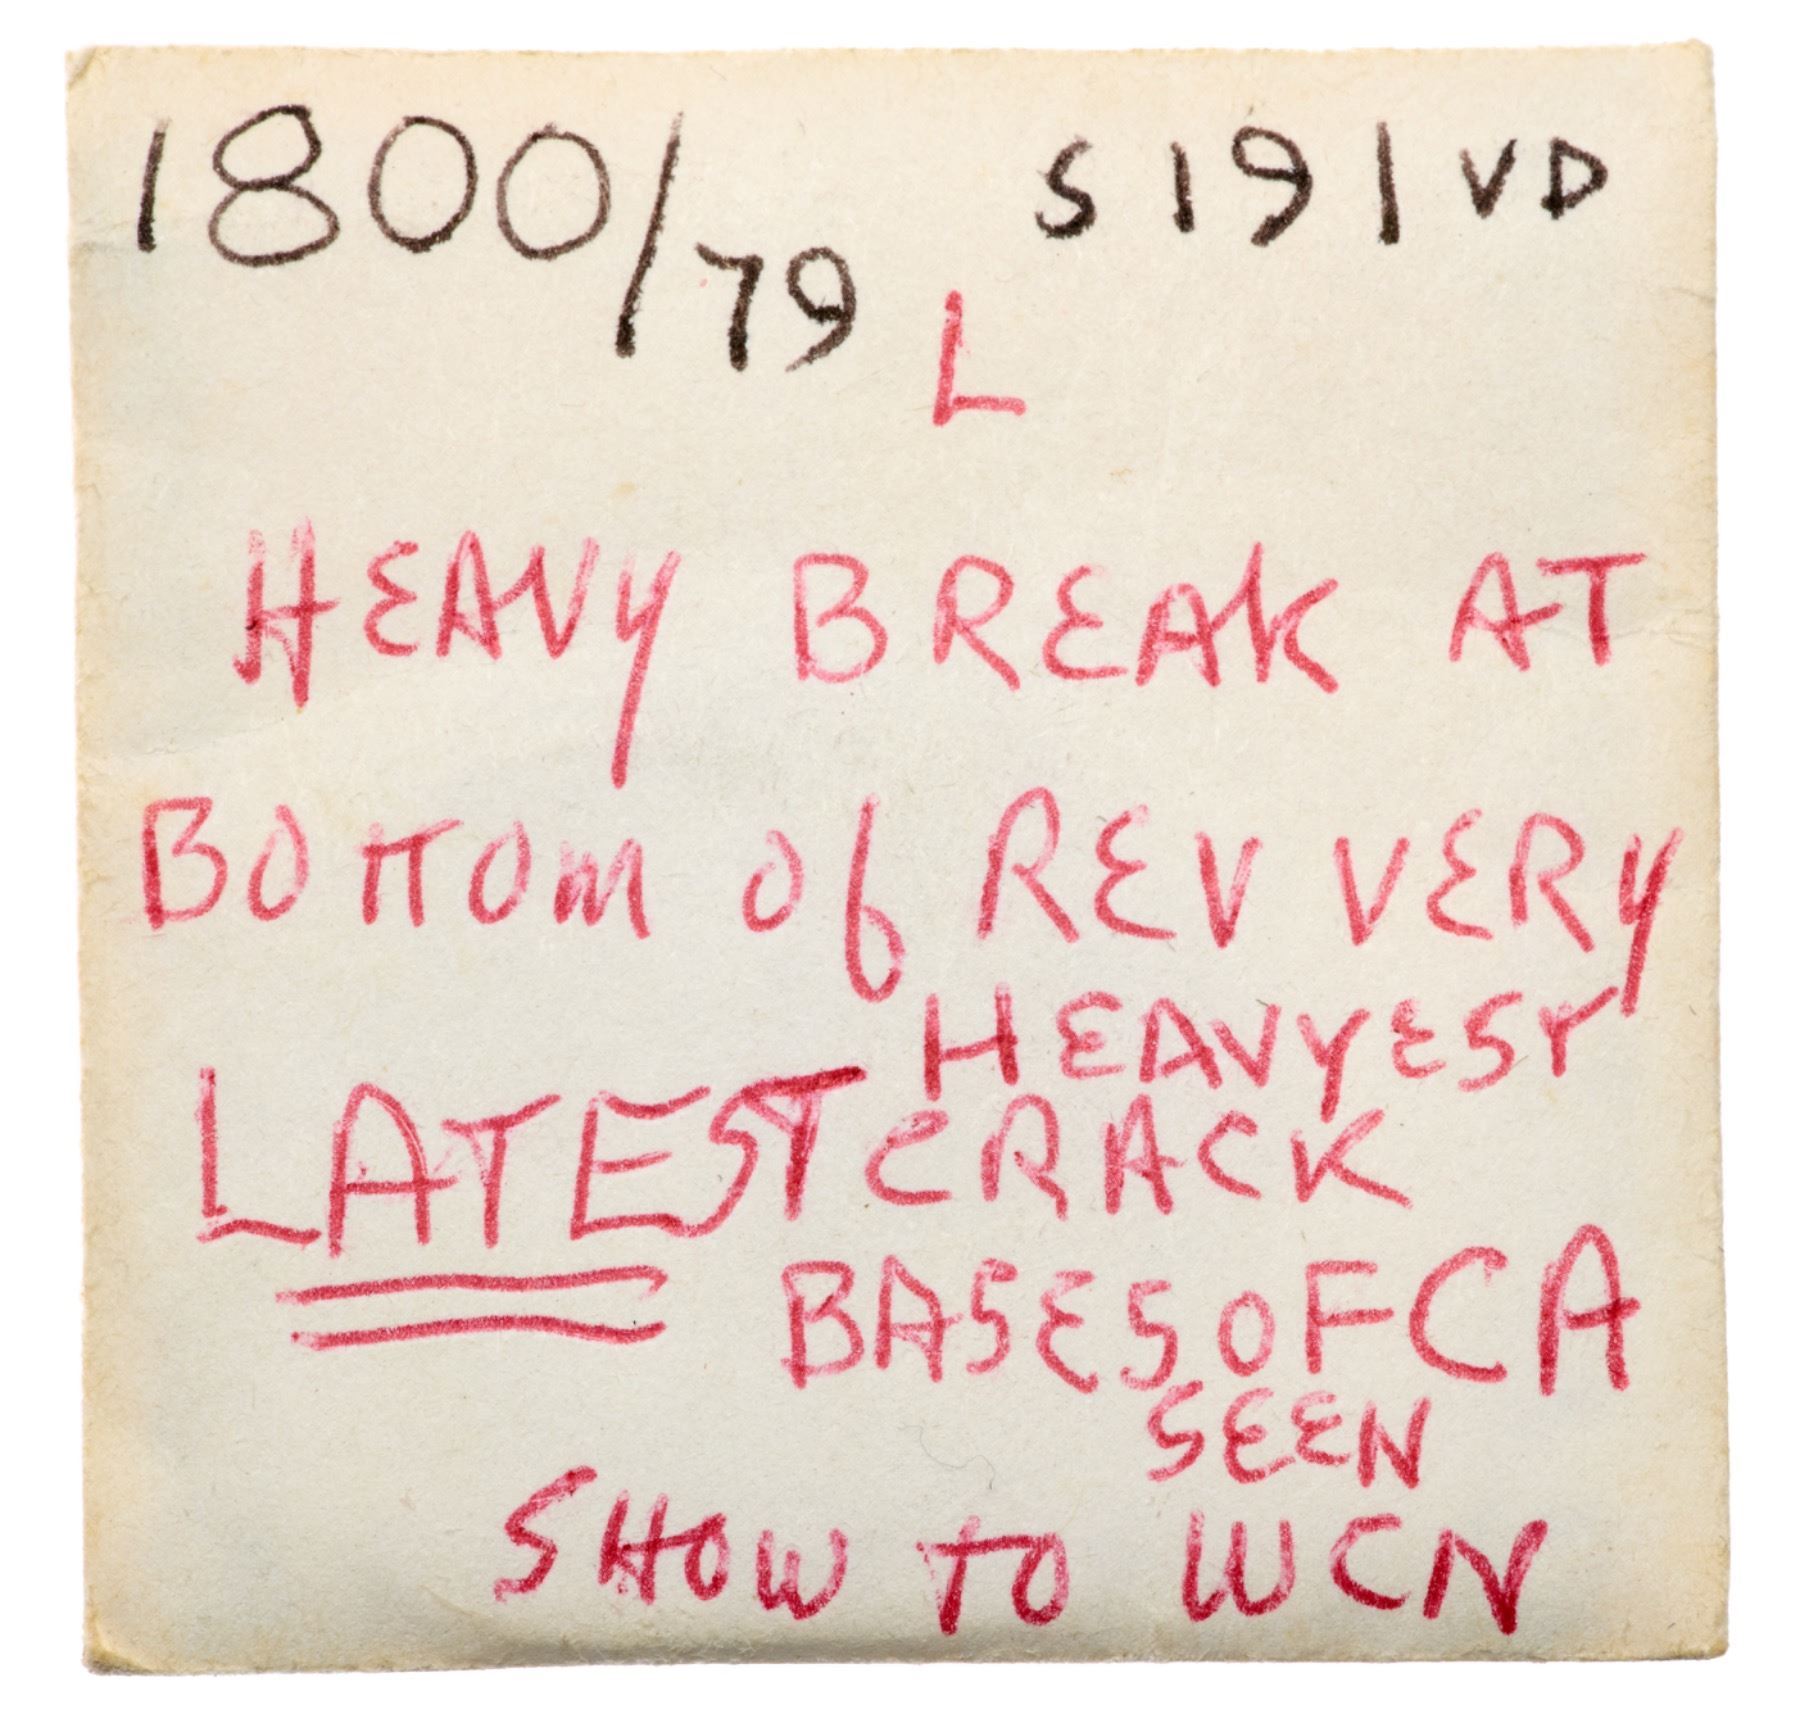 1800/79 S191 VD
L
HEAVY BREAK AT
BOTTOM Of REV VERY
HEAVYEST
LATEST CRACK
BASES OF CA
SEEN
SHOW TO WCN